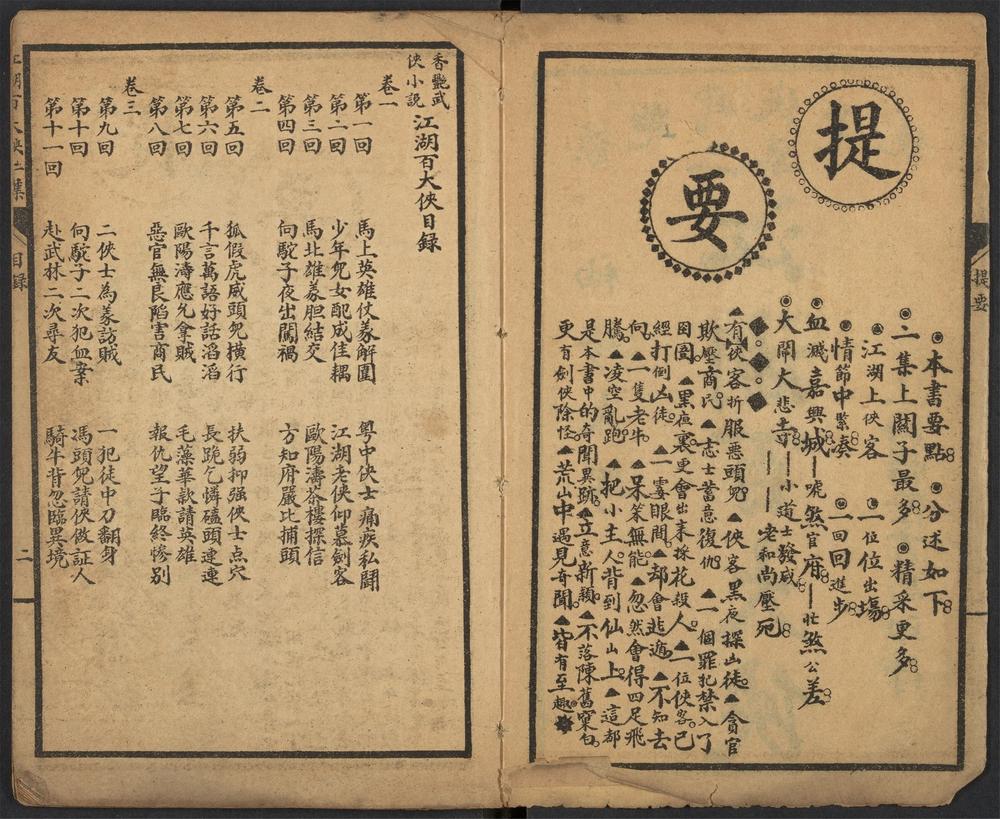 提要
◉本書要點 ◉分述如下
◉二集上關子最多 ◉精采更多
◉江湖上俠客 ◉一位位出場
◉情節中緊凑 ◉一回回進步
◉血濺嘉興城—唬煞官府—壯煞公差
◉大鬧大悲寺——小道士發威——老和尚壓死
▲有俠客折服惡頭兒▲俠客黑夜探山徒▲貪官
欺壓商民▲志士蓄意復仇▲一個罪犯禁入了
囹圄▲黑夜裏更會出來採花殺人▲一位俠客已
經打倒凶徒▲一霎眼間却會逃遁▲不知去
向▲一隻老牛▲呆笨無能忽然會得四足飛
騰▲凌空亂跑▲把小主人背到仙山上▲這都
是本書中的奇聞異跡▲立意新穎▲不落陳舊窠臼
更有劍俠除怪▲荒山中遇見奇聞▲皆有至趣
提要
香艷武
俠小說
江湖百大俠目録
卷一
第一回 馬上英雄仗義解圍 粤中俠士痛疾私鬪
第二回 少年兒女配成佳耦 江湖老俠仰慕劍客
第三回 馬北雄義胆結交 歐陽濤茶樓探信
第四回 向駝子夜出闖禍 方知府嚴比捕頭
卷二
第五回 狐假虎威頭兒横行 扶弱抑强俠士点穴
第六回 千言萬語好話滔滔 長跪乞憐磕頭連連
第七回 歐陽濤應允拿賊 毛藻華欵請英雄
第八回 惡官無良陷害商民 報仇望子臨終慘别
卷三
第九回 二俠士為義訪賊 一犯徒中刀翻身
第十回 向駝子二次犯血案 馮頭兒請俠做証人
第十一回 赴武林二次尋友 騎牛背忽臨異境
目録
二